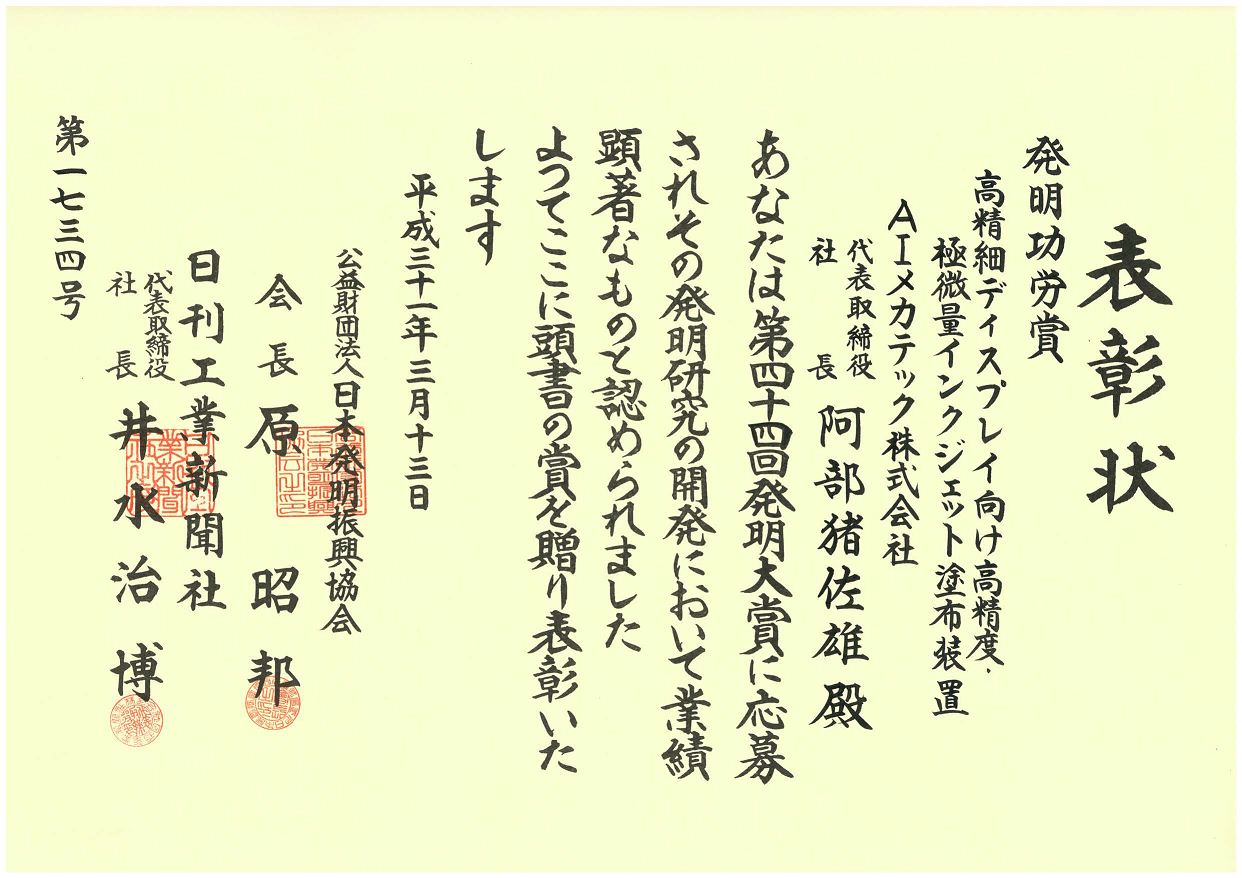 表彰状
発明功労賞
高精細ディスプレイ向け高精度・
極微量インクジェット塗布装置
AIメカテック株式会社
代表取締役
社長
阿部猪佐雄殿
あなたは第四十四回発明大賞に応募
されその発明研究の開発において業績
顕著なものと認められました
よつてここに頭書の賞を贈り表彰いた
します
平成三十一年三月十三日
公益財団法人日本発明振興協会
会長原昭邦
日刊工業新聞社
代表取締役
社長
井水治博
第一七三四号